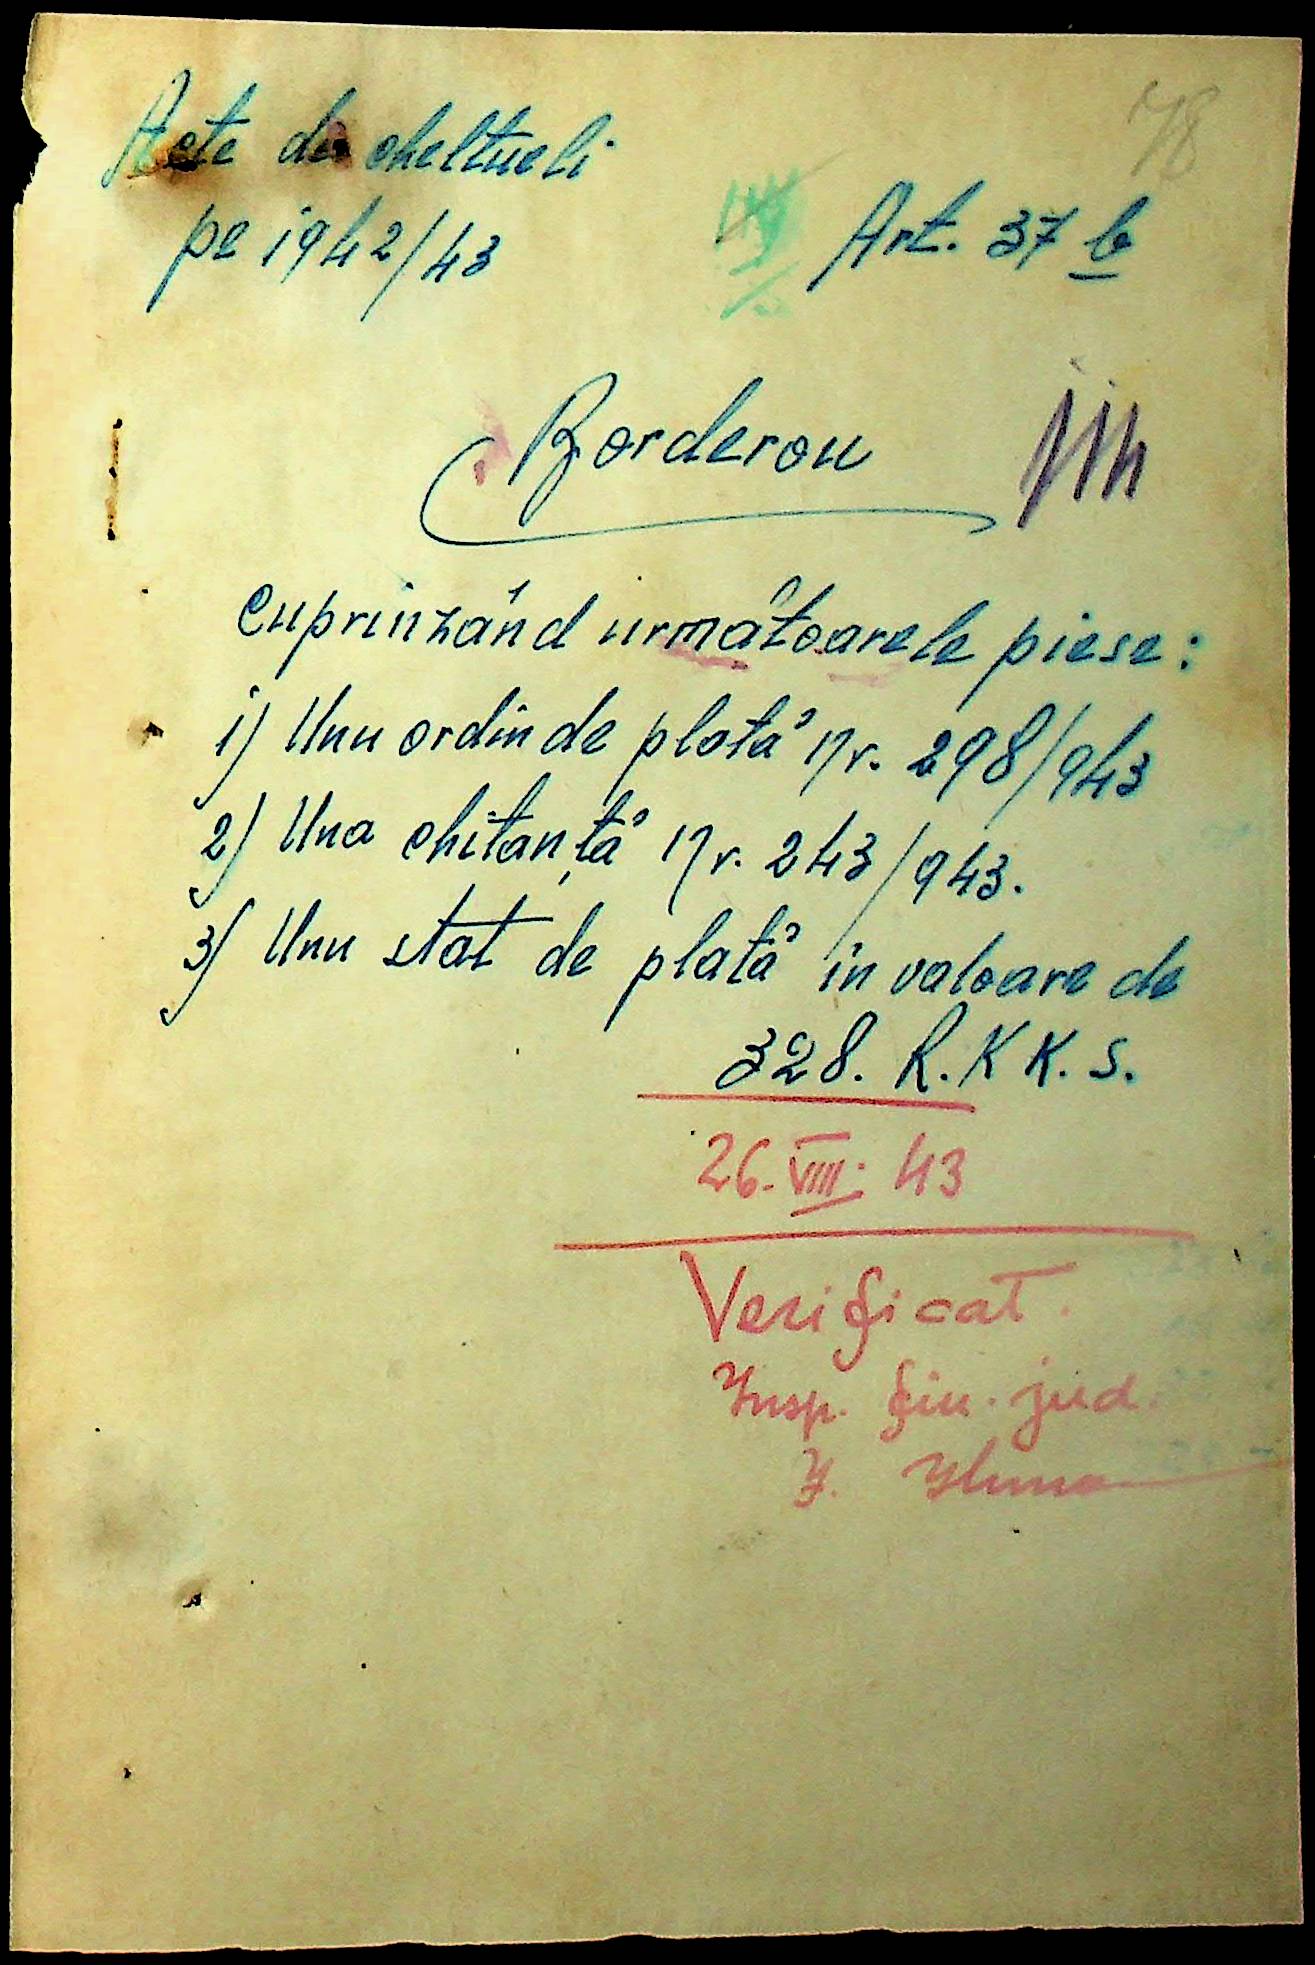 78
Acte de cheltueli
pe 1942/43
Art. 37 b
Borderou
cuprinzând următoarele piese:
1) Unu ordin de plată Nr. 298/943
2) Una chitanță Nr. 243/943.
3) Unu stat de plată în valoare de
328. R.K K. S.
26. VIII. 43
Verificat.
Insp. fin. jud.